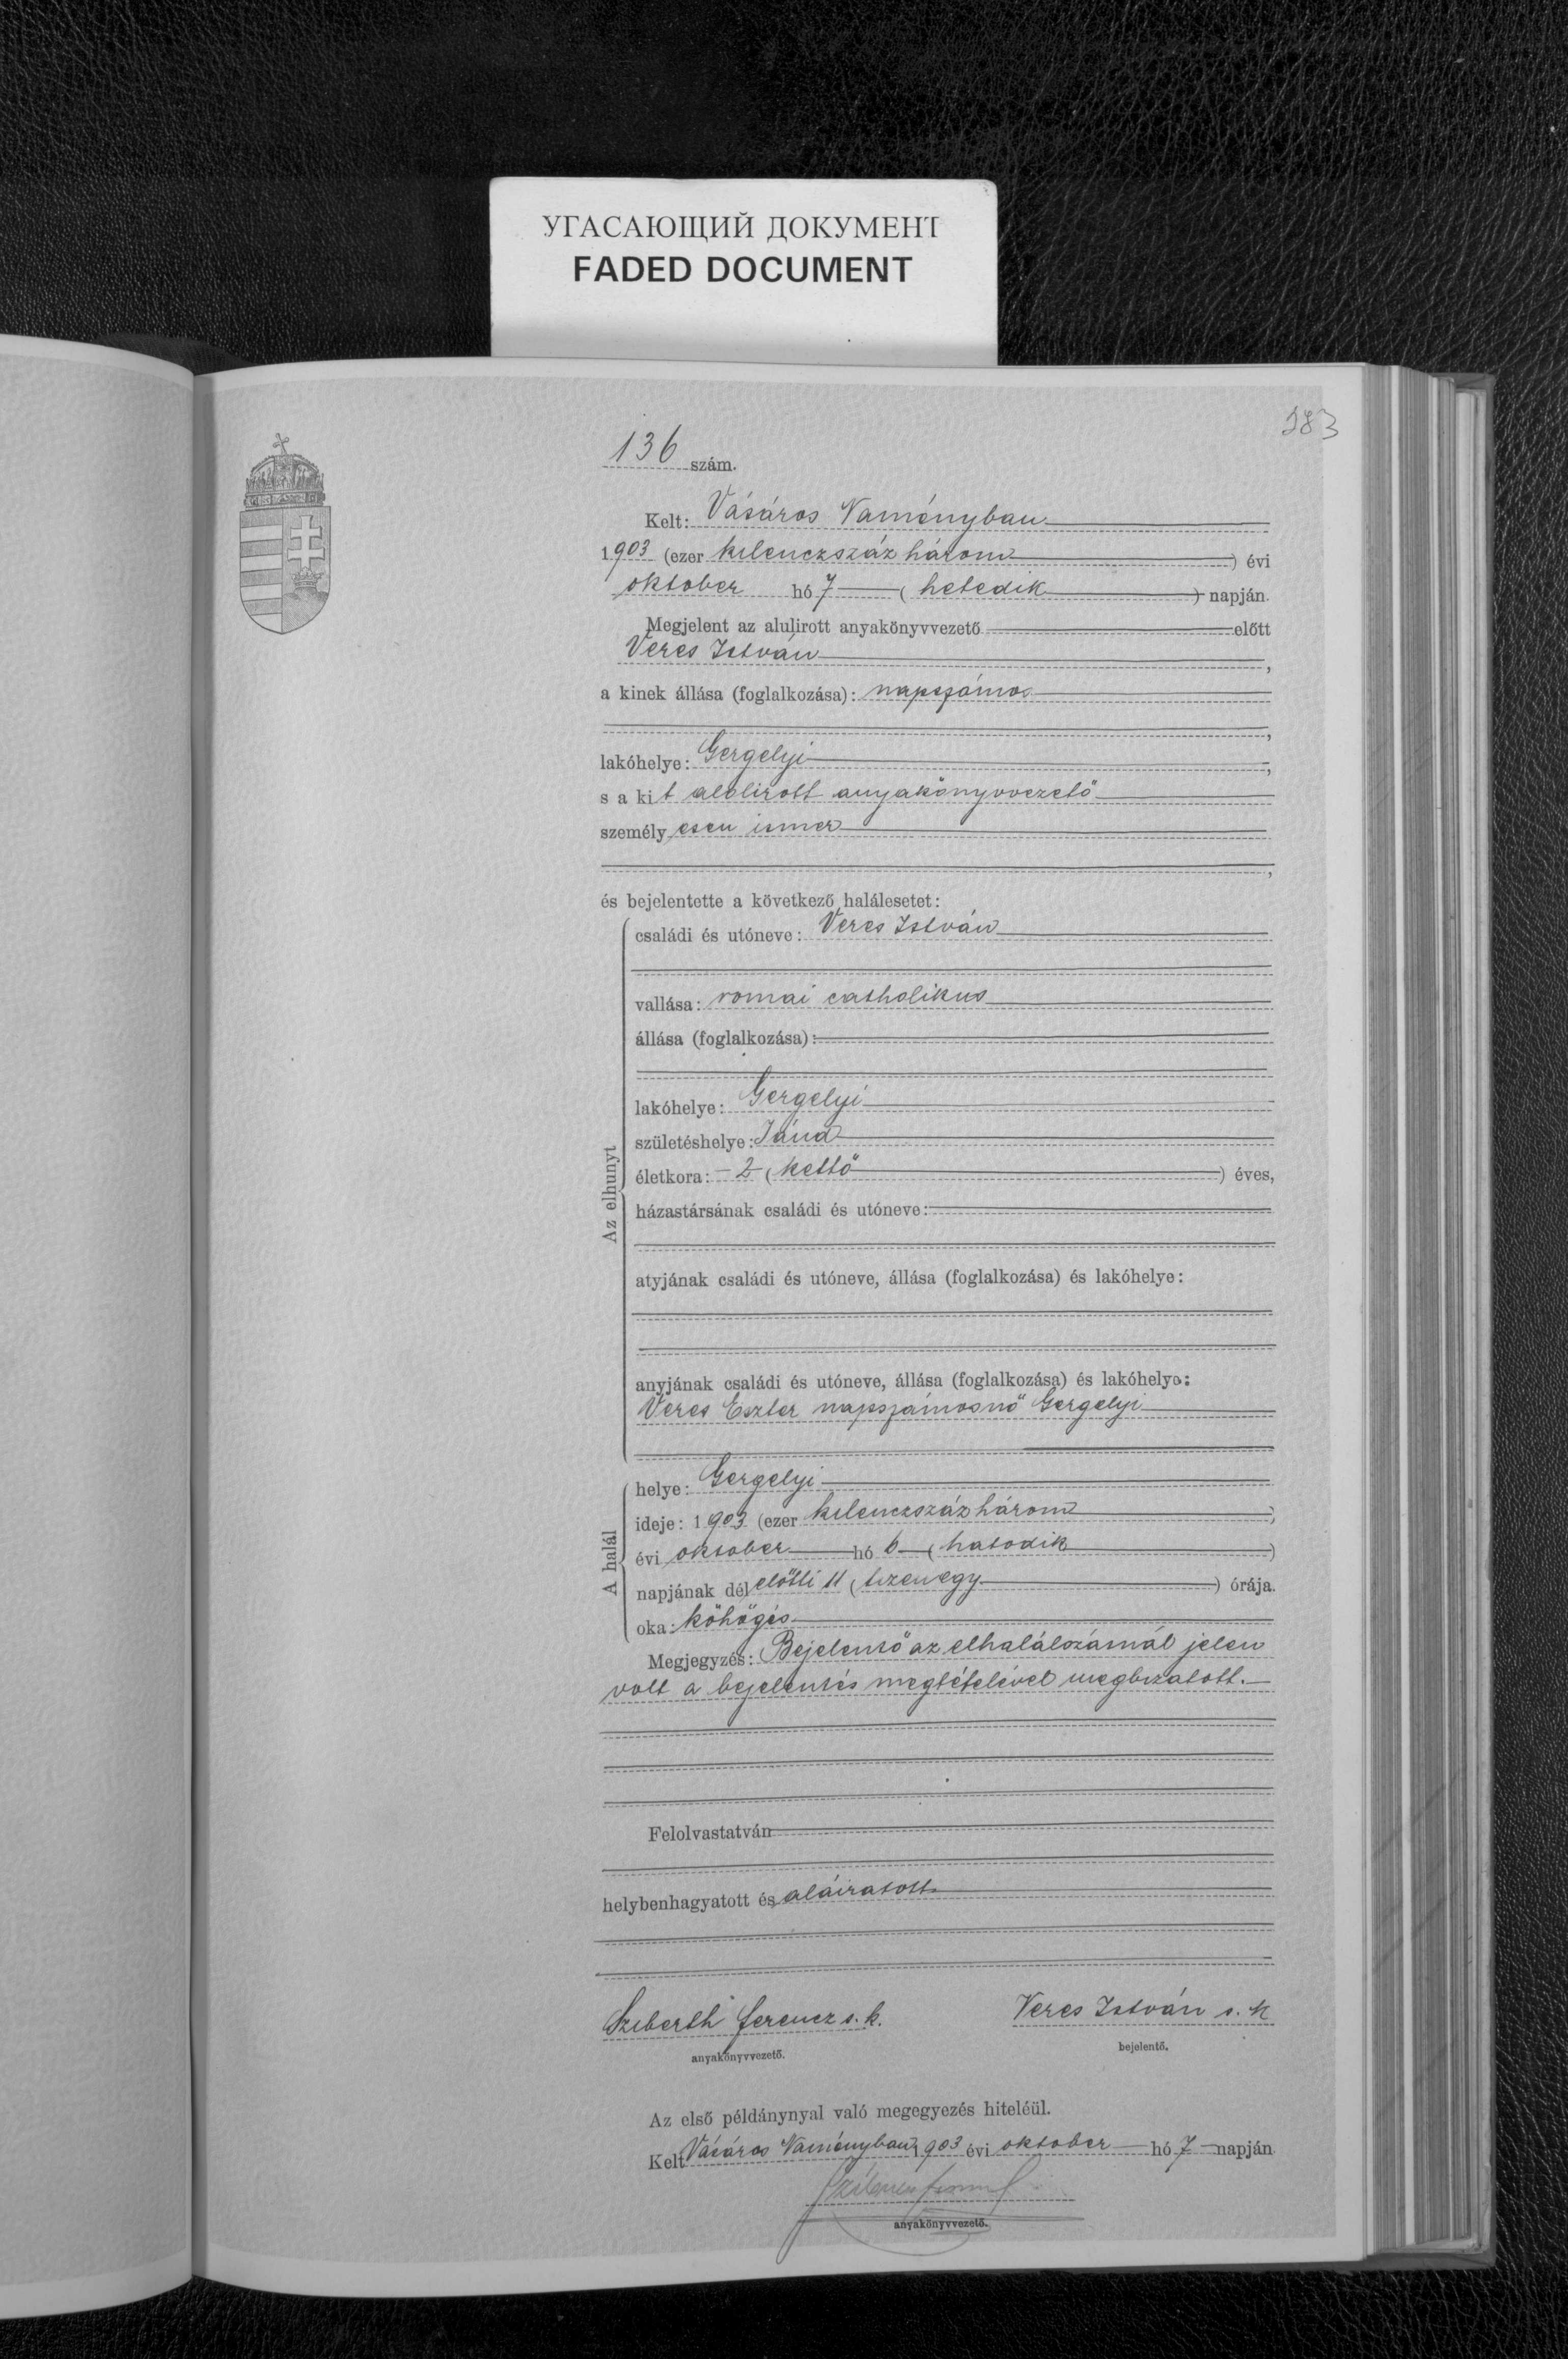 УГАСАЮЩИЙ ДОКУМЕНТ
FADED DOCUMENT
283
136 szám.
Kelt: Vásáros Naményban
1903 (ezer kilenczszáz három) évi
oktober hó 7 (hetedik) napján.
Megjelent az alulirott anyakönyvvezető előtt
Veres István,
a kinek állása (foglalkozása): napszámos
,
lakóhelye: Gergelyi,
s a kit alolirott anyakönyvvezető
személyesen ismer
,
és bejelentette a következő halálesetet:
Az elhunyt
családi és utóneve: Veres István
vallása: romai catholikus
állása (foglalkozása):
lakóhelye: Gergelyi
születéshelye: Jánd
életkora: - 2 (kettő) éves,
házastársának családi és utóneve:
atyjának családi és utóneve, állása (foglalkozása) és lakóhelye:
anyjának családi és utóneve, állása (foglalkozása) és lakóhelye:
Veres Eszter napszámosnő Gergelyi
A halál
helye: Gergelyi
ideje: 1903 (ezer kilenczszáz három)
évi oktober hó 6 (hatodik)
napjának délelőtti 11 (tizenegy) órája.
oka: köhögés
Megjegyzés: Bejelentő az elhalálozásnál jelen
volt a bejelentés megtételével megbizatott.
Felolvastatván
helybenhagyatott és aláiratott.
Sziberth Ferencz s. k.
anyakönyvvezető.
Veres István s. k
bejelentő.
Az első példánynyal való megegyezés hiteléül.
Kelt Vásáros Naményban 1903 évi oktober hó 7 napján
anyakönyvvezető.